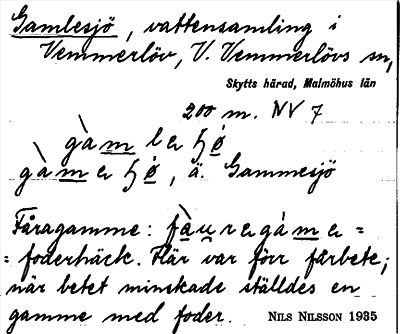 Gamlesjö, vattensamling i
Vemmerlöv, V. Vemmerlövs sn,
Skytts härad, Malmöhus län
200 m. NV 7
gàmleɧø
gàmeɧø, ä. Gammesjö
Fåragamme: fàu̯regàme =
= foderhäck. Här var förr fårbete;
när betet minskade ställdes en
gamme med foder. NILS NILSSON 1935